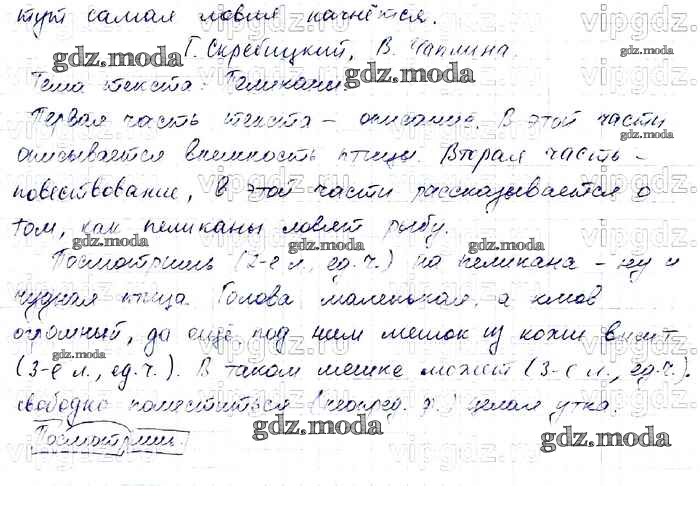 тут самая ловля начнётся.
Г. Скребицкий, В. Чаплина.
Тема текста: Пеликаны.
Первая часть текста – описание. В этой части
описывается внешность птицы. Вторая часть –
повествование, в этой части рассказывается о
том, как пеликаны ловят рыбу.
Посмотришь (2-е л., ед.ч.) на пеликана – ну и
чудная птица. Голова маленькая, а клюв
огромный, да ещё под ним мешок из кожи висит
(3-е л., ед.ч.). В таком мешке может (3-е л., ед.ч.)
свободно поместиться (неопред. ф.) целая утка.
Посмотришь.
gdz.moda
vipgdz.ru